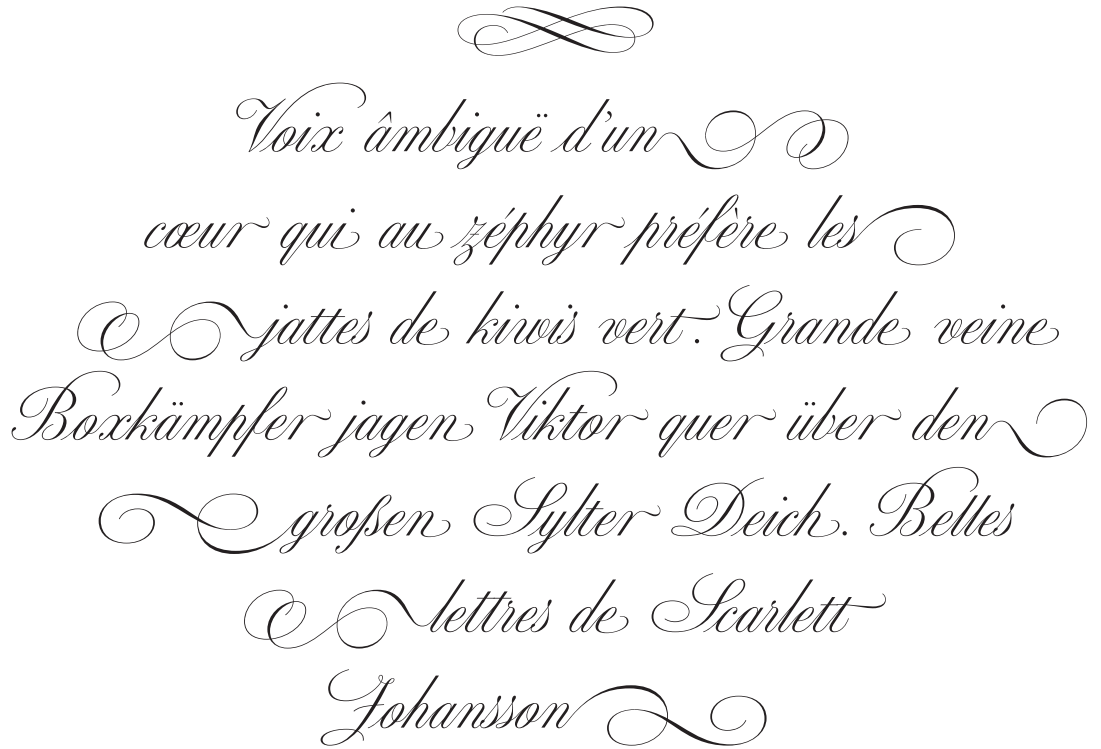 Voix âmbiguë d’un
cœur qui au zéphyr préfère les
jattes de kiwis vert. Grande veine
Boxkämpfer jagen Viktor quer über den
großen Sylter Deich. Belles
lettres de Scarlett
Johansson